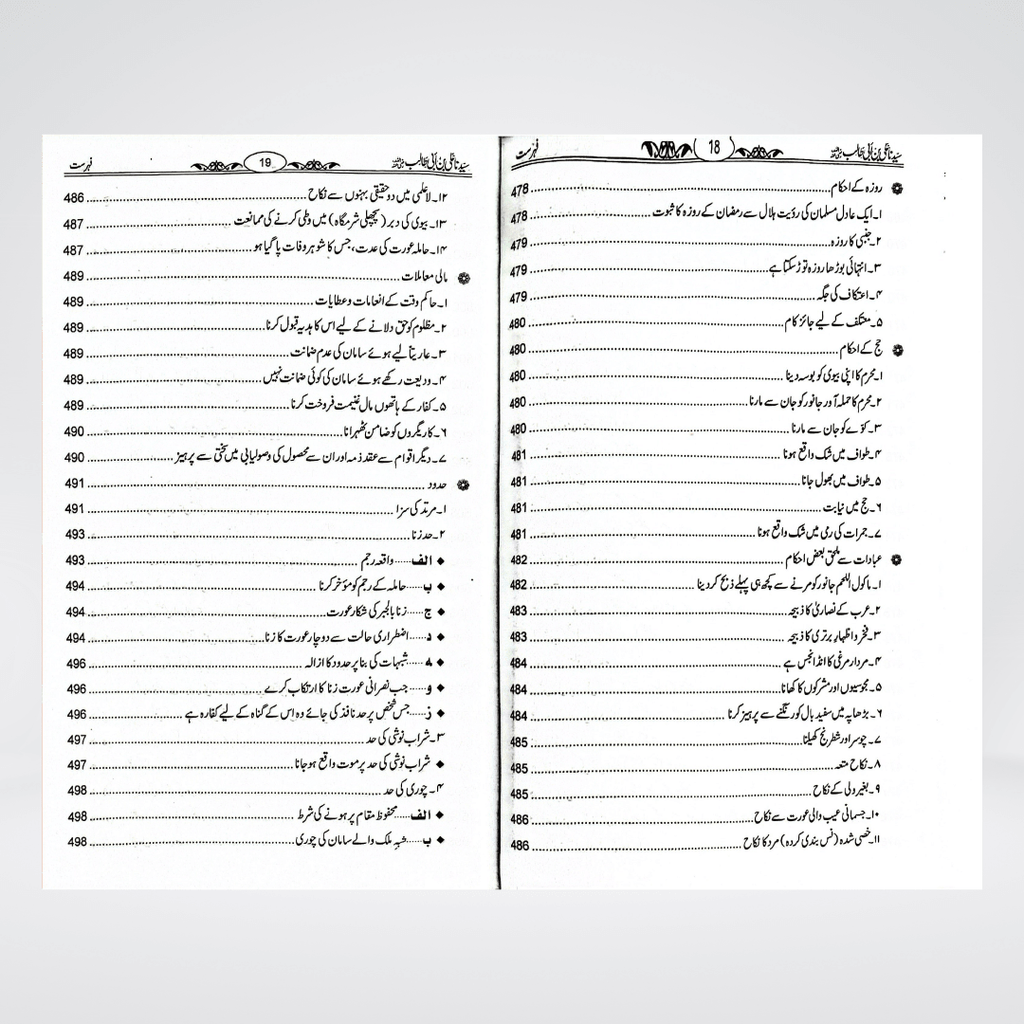 سیدنا علی بن ابی طالب رضی اللہ عنہ 18 فہرست
روزہ کے احکام 478
۱۔ ایک عادل مسلمان کی رؤیت ہلال سے رمضان کے روزہ کا ثبوت 478
۲۔ جنبی کا روزہ 479
۳۔ انتہائی بوڑھا روزہ توڑ سکتا ہے 479
۴۔ اعتکاف کی جگہ 479
۵۔ معتکف کے لیے جائز کام 480
حج کے احکام 480
۱۔ محرم کا اپنی بیوی کو بوسہ دینا 480
۲۔ محرم کا حملہ آور جانور کو جان سے مارنا 480
۳۔ کوّے کو جان سے مارنا 480
۴۔ طواف میں شک واقع ہونا 481
۵۔ طواف میں بھول جانا 481
۶۔ حج میں نیابت 481
۷۔ جمرات کی رمی میں شک واقع ہونا 481
عبادات سے ملحق بعض احکام 482
۱۔ ماکول اللحم جانور کو مرنے سے کچھ ہی پہلے ذبح کردینا 482
۲۔ عرب کے نصاریٰ کا ذبیحہ 483
۳۔ فخر و اظہارِ برتری کا ذبیحہ 483
۴۔ مردار مرغی کا انڈا نجس ہے 484
۵۔ مجوسیوں اور مشرکوں کا کھانا 484
۶۔ بڑھاپہ میں سفید بال کو رنگنے سے پرہیز کرنا 484
۷۔ چوسر اور شطرنج کھیلنا 485
۸۔ نکاح متعہ 485
۹۔ بغیر ولی کے نکاح 485
۱۰۔ جسمانی عیب والی عورت سے نکاح 486
۱۱۔ خصی شدہ (نس بندی کردہ) مرد کا نکاح 486
سیدنا علی بن ابی طالب رضی اللہ عنہ 19 فہرست
۱۲۔ لاعلمی میں دو حقیقی بہنوں سے نکاح 486
۱۳۔ بیوی کی دبر (پچھلی شرمگاہ) میں وطی کرنے کی ممانعت 487
۱۴۔ حاملہ عورت کی عدت، جس کا شوہر وفات پا گیا ہو 487
مالی معاملات 489
۱۔ حاکم وقت کے انعامات و عطایات 489
۲۔ مظلوم کو حق دلانے کے لیے اس کا ہدیہ قبول کرنا 489
۳۔ عاریتاً لیے ہوئے سامان کی عدم ضمانت 489
۴۔ ودیعت رکھے ہوئے سامان کی کوئی ضمانت نہیں 489
۵۔ کفار کے ہاتھوں مال غنیمت فروخت کرنا 489
۶۔ کاریگروں کو ضامن ٹھہرانا 490
۷۔ دیگر اقوام سے عقد ذمہ اور ان سے محصول کی وصولیابی میں سختی سے پرہیز 490
حدود 491
۱۔ مرتد کی سزا 491
۲۔ حد زنا 493
الف واقعہ رجم 493
ب حاملہ کے رجم کو مؤخر کرنا 494
ج زنا بالجبر کی شکار عورت 494
د اضطراری حالت سے دوچار عورت کا زنا 494
ہ شبہات کی بنا پر حدود کا ازالہ 496
و جب نصرانی عورت زنا کا ارتکاب کرے 496
ز جس شخص پر حد نافذ کی جائے وہ اس کے گناہ کے لیے کفارہ ہے 496
۳۔ شراب نوشی کی حد 497
شراب نوشی کی حد پر موت واقع ہوجانا 497
۴۔ چوری کی حد 498
الف محفوظ مقام پر ہونے کی شرط 498
ب شبہِ ملک والے سامان کی چوری 498